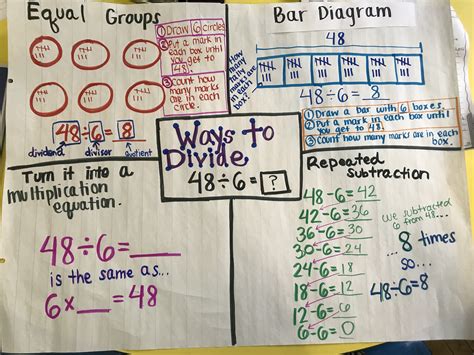 Equal Groups
① Draw 6 circles
② Put a mark in
each box until
you get to
48.
③ Count how
many marks
are in each
circle.
48÷6= 8
dividend divisor quotient
Bar Diagram
48
How
many
in
each?
48÷6=8
① Draw a bar with 6 boxes.
② Put a mark in each box until
you get to 48.
③ Count how many marks are in each
box.
Ways to
Divide
48÷6= ?
Turn it into a
multiplication
equation.
48÷6=____
is the same as...
6x ___ =48
Repeated
Subtraction
48-6= 42
42-6= 36
36-6= 30
30-6= 24
24-6= 18
18-6= 12
12-6= 6
6-6= 0
we subtracted
6 from 48...
...8 times
so...
48÷6=8